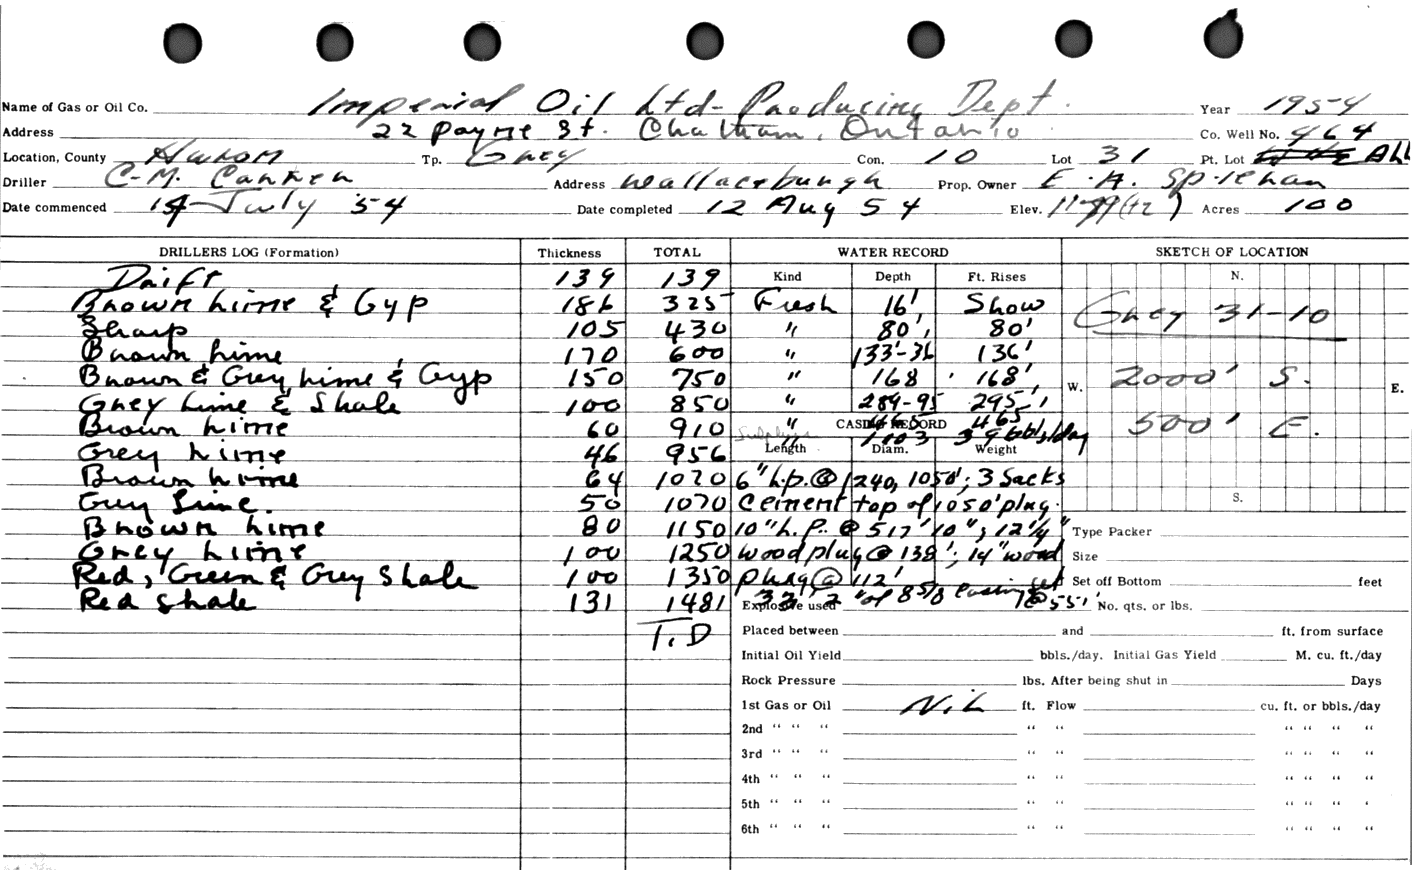 Name of Gas or Oil Co. Imperial Oil Ltd - Producing Dept. Year 1954
Address 22 Payne St. Chatham, Ontario Co. Well No. 464
Location, County Huron Tp. Grey Con. 10 Lot 31 Pt. Lot All
Driller C.M. Address Wallaceburgh Prop. Owner E. A.
Date commenced July '54 Date completed 12 Aug 54 Elev. Acres 100
DRILLERS LOG (Formation) Thickness TOTAL WATER RECORD SKETCH OF LOCATION
Drift 139 139 Kind Depth Ft. Rises N.
Brown Lime & Gyp 186 325 Fresh 16' Show Grey 31-10
Sharp 105 430 " 80' 80'
Brown Lime 170 600 " 133'-36 136'
Brown & Grey Lime & Gyp 150 750 " 168 168' W. 2000' S. E.
Grey Lime & Shale 100 850 " 289-95 295'
Brown Lime 60 910 " 465 465 CASING RECORD 500' E.
Grey Lime 46 956 Length Diam. Weight
Brown Lime 64 1020 6" L.p. @ 1240, 1050'; 3 Sacks
Grey Lime. 50 1070 Cement top of 1050' plug. S.
Brown Lime 80 1150 10" L.P. @ 517' 10"; 12 1/4" Type Packer
Grey Lime 100 1250 wood plug @ 138'; 14" wood Size
Red, Green & Grey Shale 100 1350 plug @ 112' Set off Bottom feet
Red Shale 131 1481 Explosive used of 8 5/8 casing set @ 551' No. qts. or lbs.
T.D Placed between and ft. from surface
Initial Oil Yield bbls./day. Initial Gas Yield M. cu. ft./day
Rock Pressure lbs. After being shut in Days
1st Gas or Oil Nil ft. Flow cu. ft. or bbls./day
2nd " " " " " " " " "
3rd " " " " " " " " "
4th " " " " " " " " "
5th " " " " " " " " "
6th " " " " " " " " "